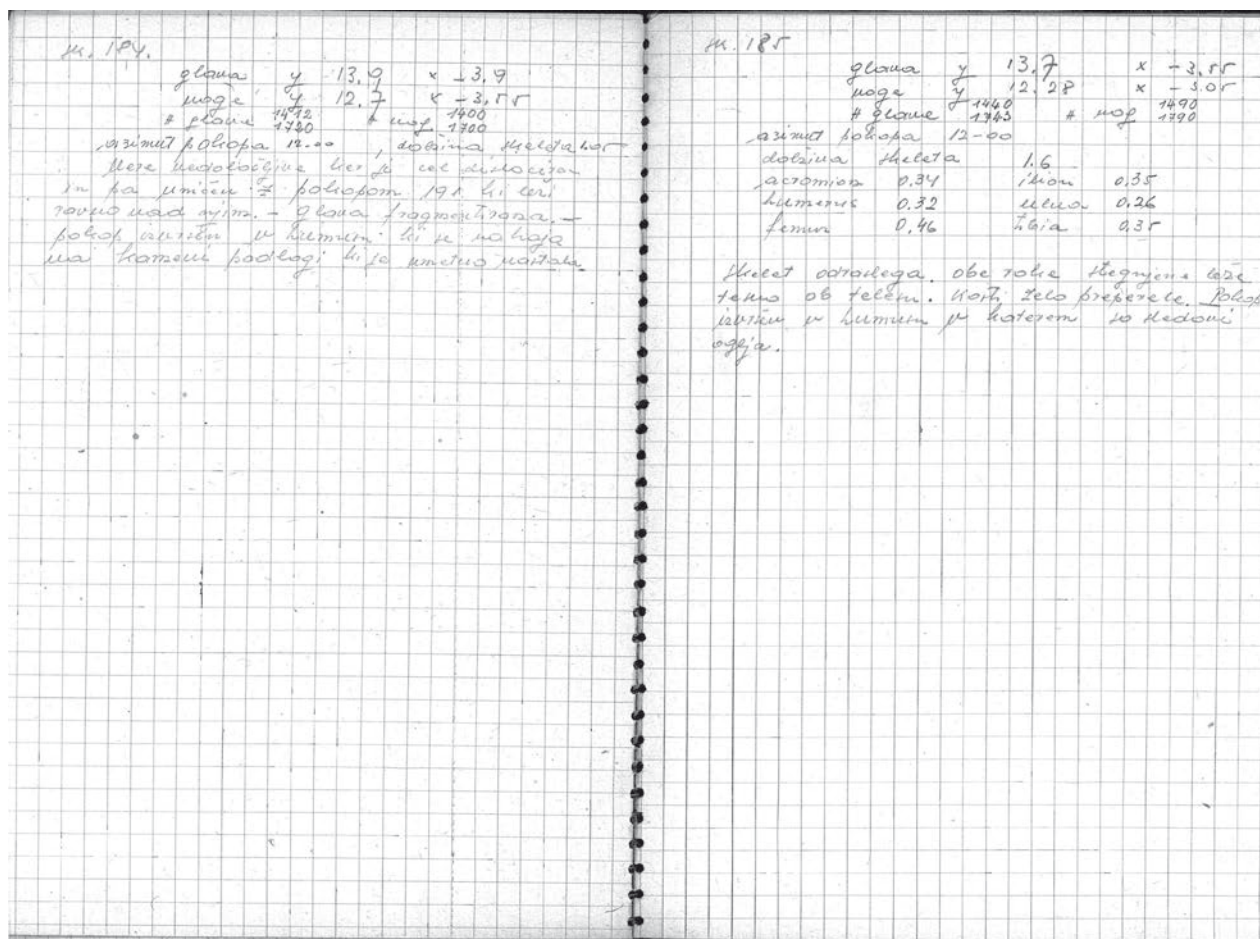 sk. 184.
glava y 13.9 x -3.9
noge y 12.7 x -3.55
# glave 1412 1720 # nog 1400 1700
azimut pokopa 12.00, dolžina skeleta
Mere nedoločljive ker je cel dislociran
in pa uničen z pokopom 191 ki leži
ravno nad njim. - glava fragmentirana. -
pokop izvršen v humusu ki se nahaja
na kameni podlagi ki je umetno nastala.
sk. 185
glava y 13.7 x -3.55
noge y 12.28 x -3.05
# glave 1440 1743 # nog 1490 1790
azimut pokopa 12-00
dolžina skeleta 1.6
acromion 0.34 ilion 0.35
humerus 0.32 ulna 0.26
femur 0.46 tibia 0.35
Skelet odraslega. obe roke stegnjene leže
tesno ob telesu. Kosti zelo preperele. Pokop
izvršen v humusu v katerem so sledovi
oglja.